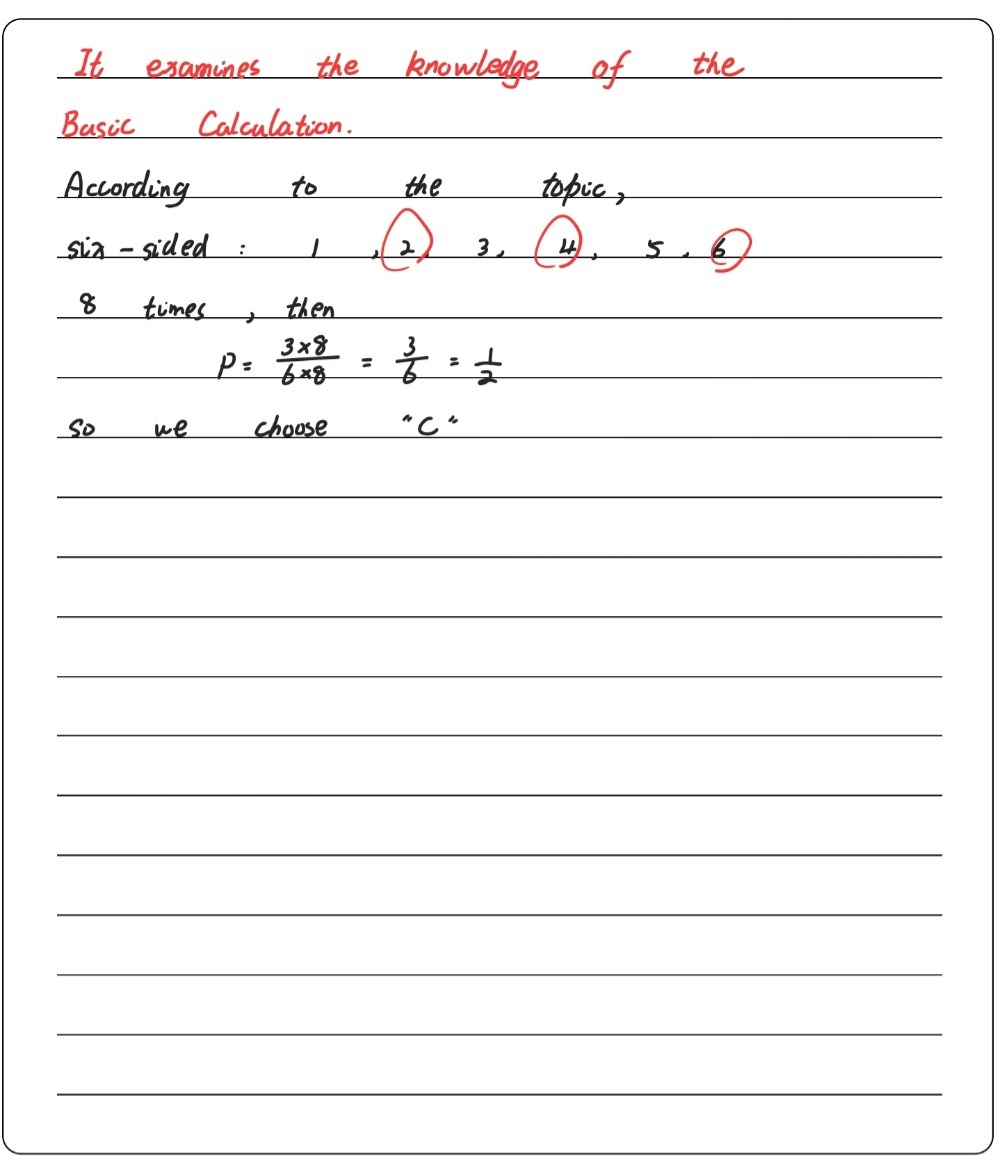 It examines the knowledge of the
Basic Calculation.
According to the topic,
six-sided : 1 , 2, 3, 4, 5, 6
8 times, then
P = 3×8/6×8 = 3/6 = 1/2
so we choose "C"